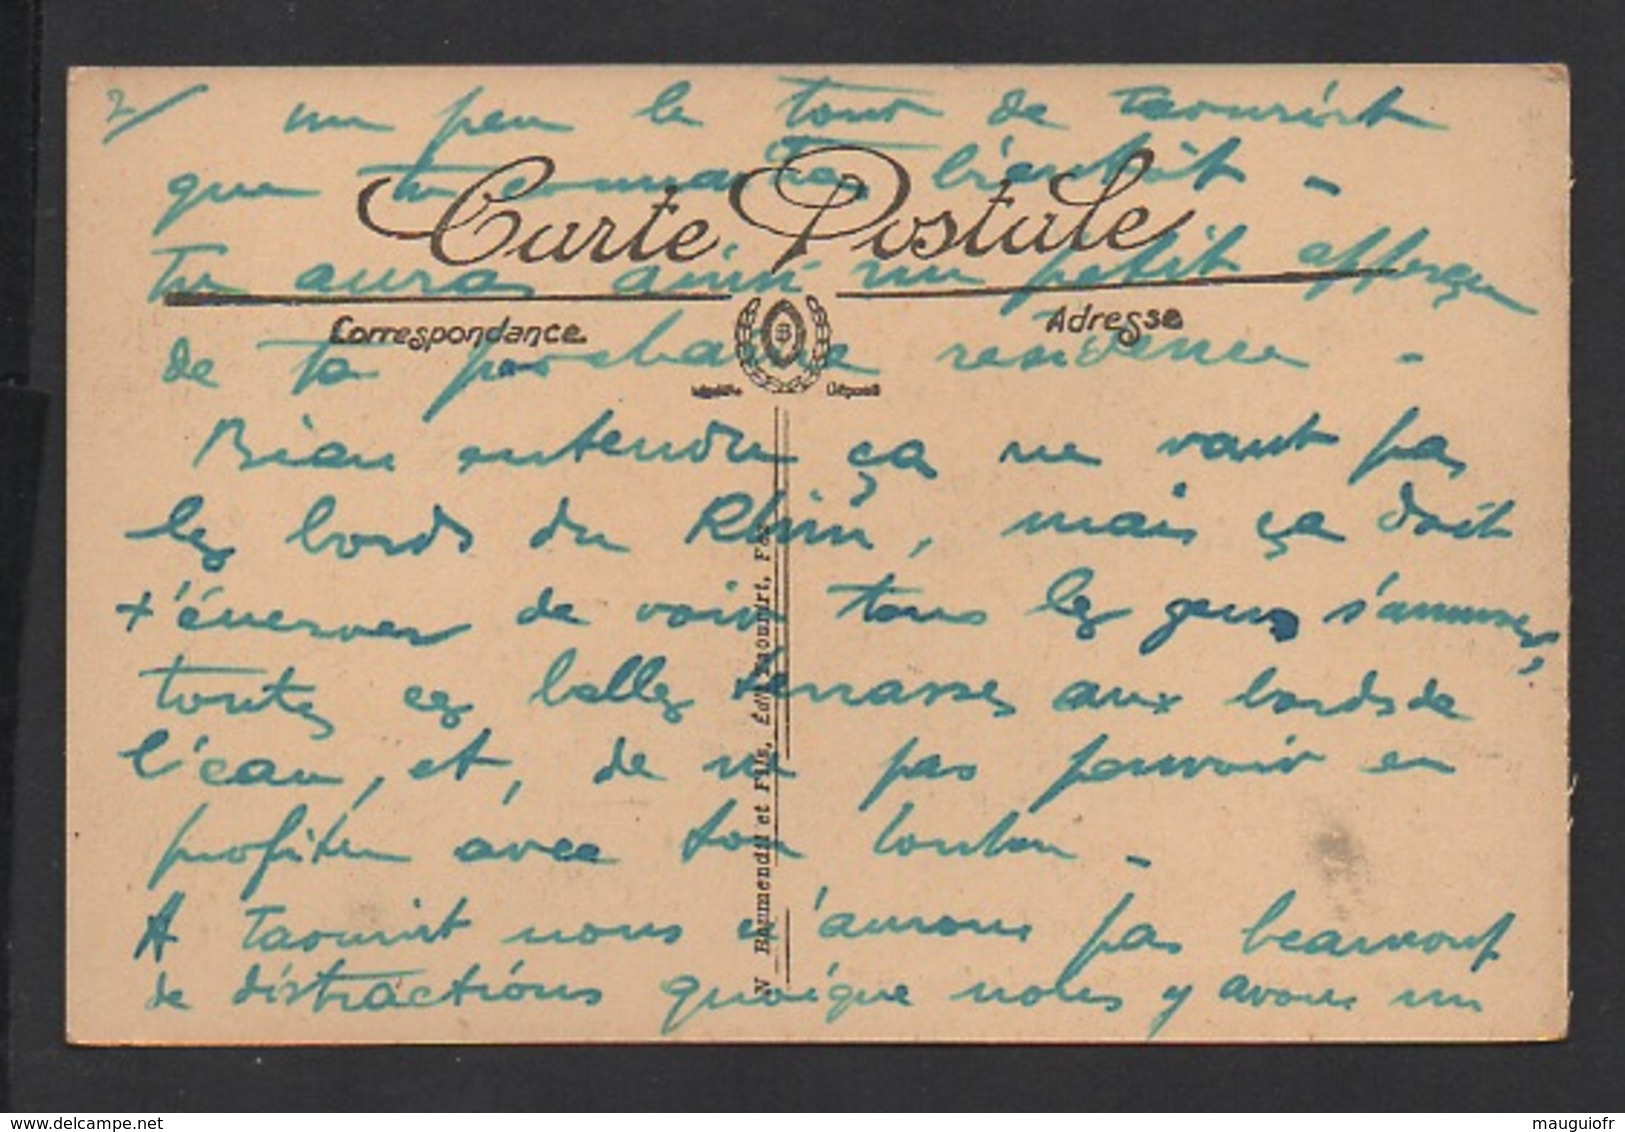 2/ un peu le tour de Taourirt
que tu connaîtras bientôt -
Carte Postale
Tu auras ainsi un petit apperçu
Correspondance
Adresse
de ta prochaine résidence -
Modèle Déposé
Bien entendu ça ne vaut pas
les bords du Rhin, mais ça doit
t'énerver de voir tous les gens s'amuser,
toutes ces belles terrasses aux bords de
l'eau, et, de ne pas pouvoir en
profiter avec ton
A Taourirt nous n'aurons pas beaucoup
de distractions quoique nous y avons un
et Fils, Édit. Taourirt, Fez
mauguiofr